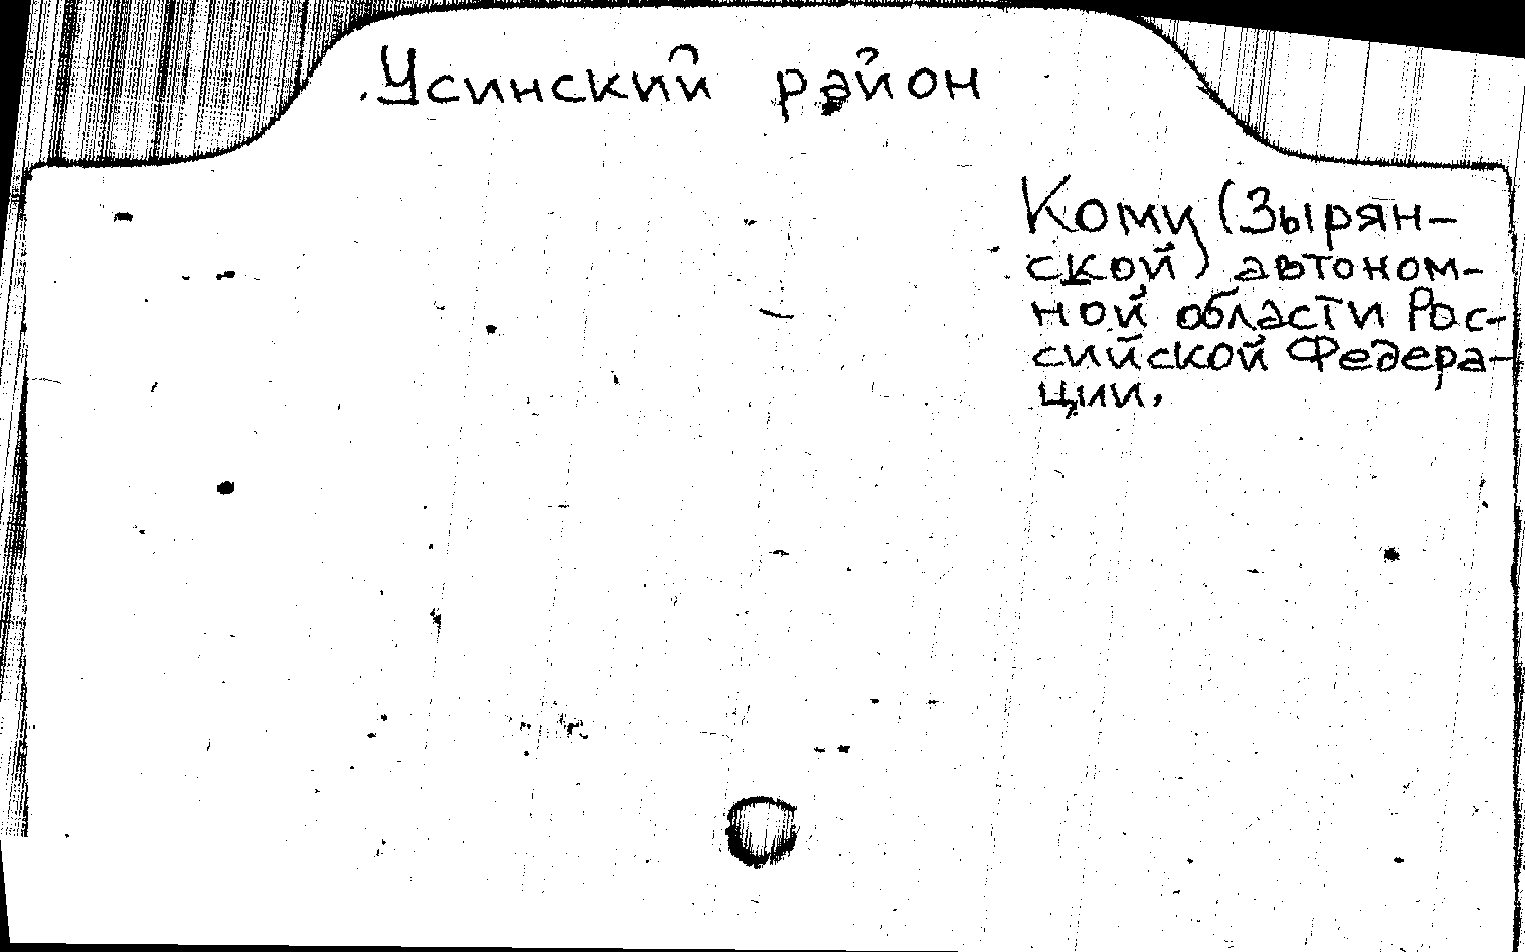 Усинский район
Коми (Зырян-
ской) автоном-
ной области Рос-
сийской Федера-
ции.